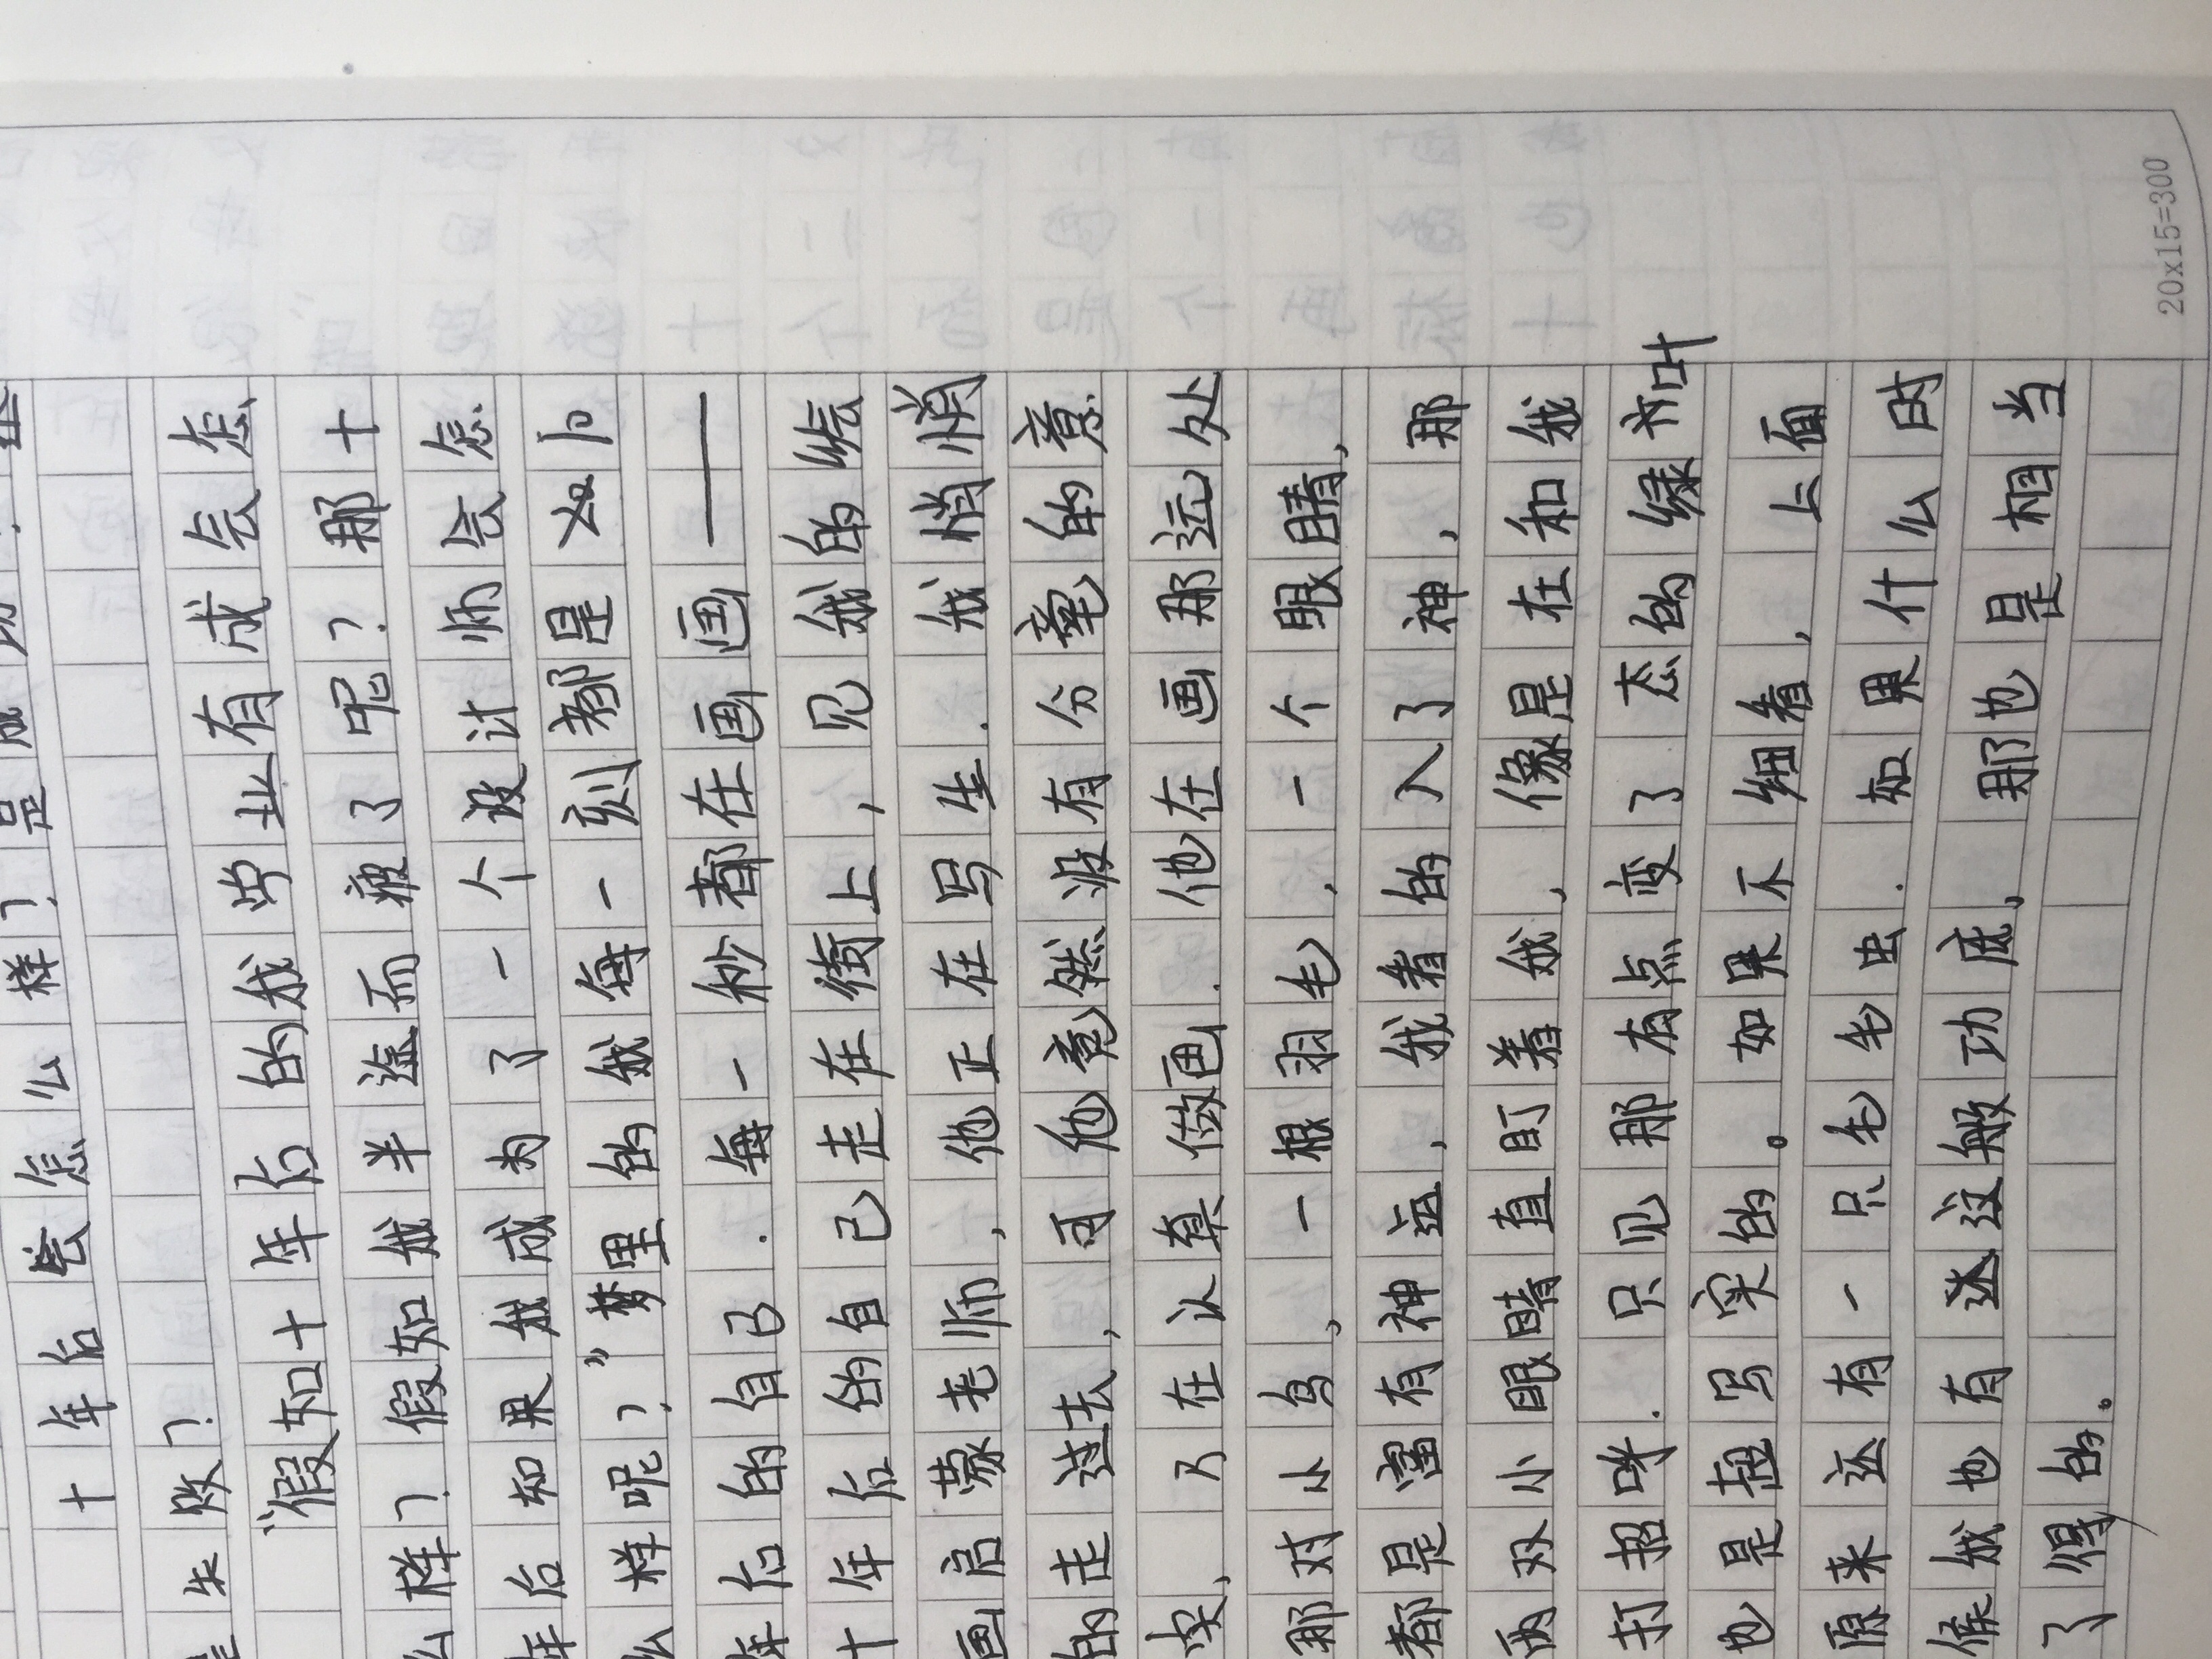 十年后会怎么样？是成功．
是失败？
“假如十年后的我学业有成会怎
么样？假如我半途而疲了呢？那十
年后如果我成为了一个设计师会怎
么样呢？”梦里的我每一刻都是如
年后的自己．每一秒都在画画——
十年后的自己走在街上，见我的绘
画启蒙老师，他正在写生．我悄悄
的走过去，可他竟然没有分毫的意
外，乃在认真做画．他在画那远处
那对小鸟，一根羽毛，一个眼睛，
都是富有神运，我看的入了神，那
两双小眼睛直盯着我，像是在和我
打招呼．只见那有点变了态的绿衬叶
也是挺写实的。如果不细看，上面
原来还有一只毛毛虫．如果什么时
候我也有这般功底，那也是相当
了得的。
20x15=300